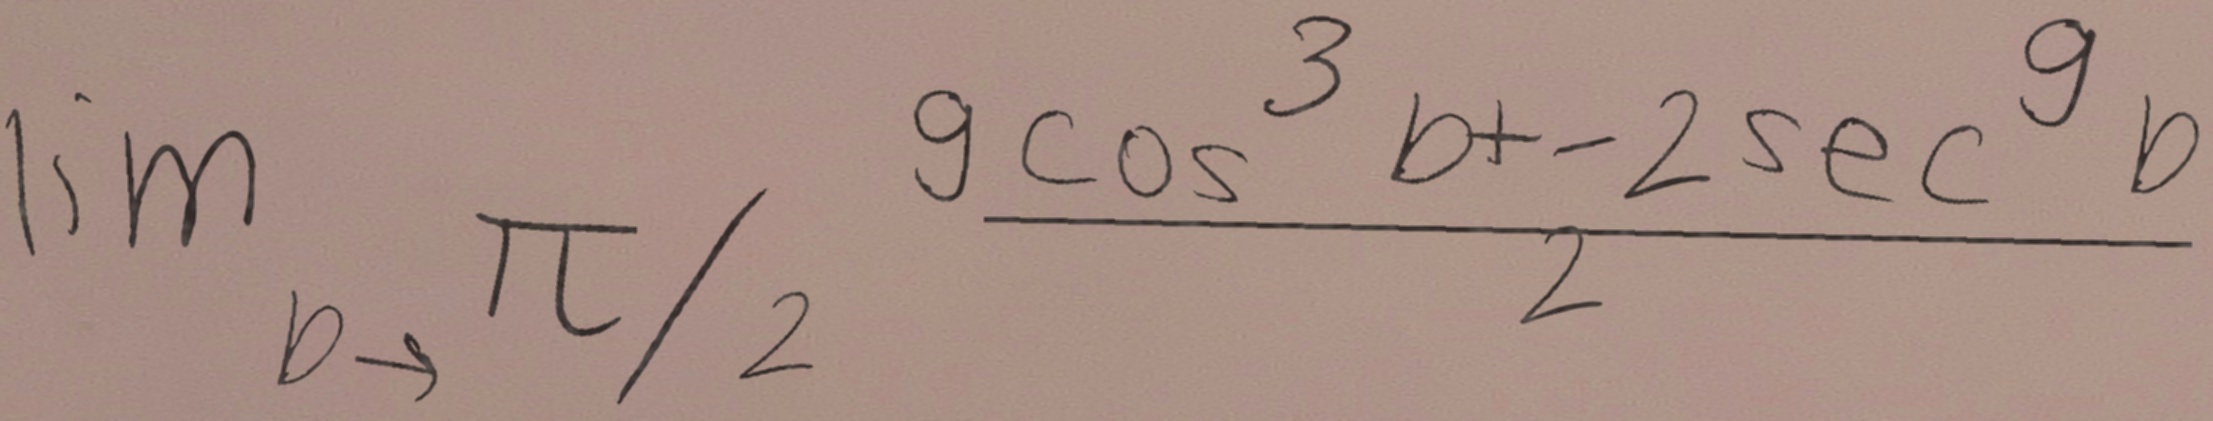 \lim_{b \to \pi/2} \frac{9 \cos^3 b + -2 \sec^9 b}{2}